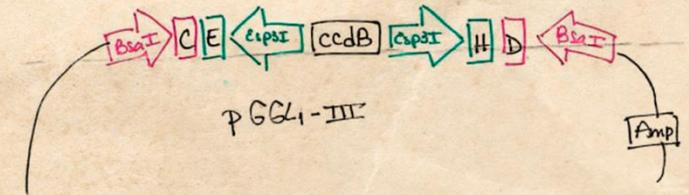 BsaI C E Esp3I ccdB Esp3I H D BsaI
pGGL1-III
Amp